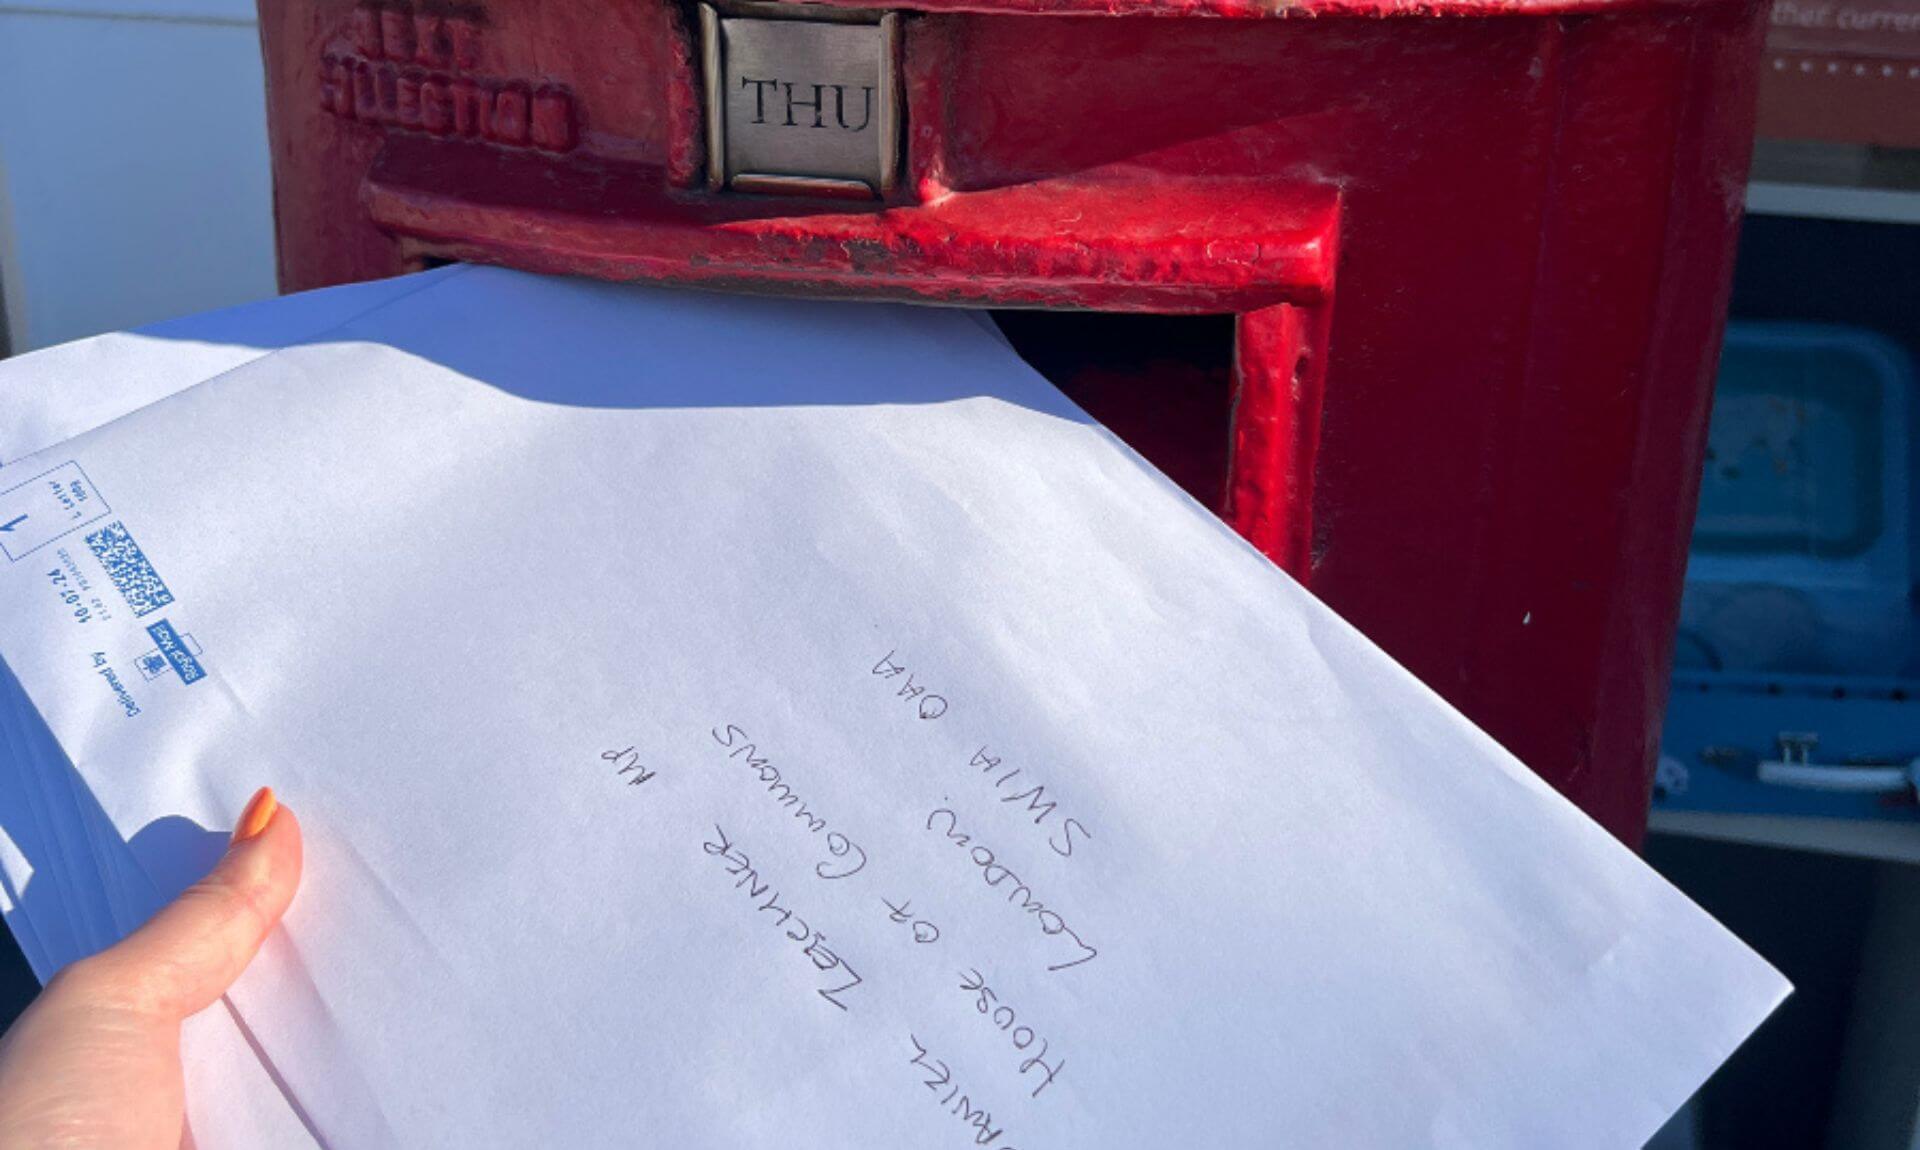 NEXT
COLLECTION
THU
1
L Letter
100g
10-07-24
Delivered by
Royal Mail
DANIEL ZEICHNER MP
HOUSE OF COMMONS
LONDON
SW1A 0AA